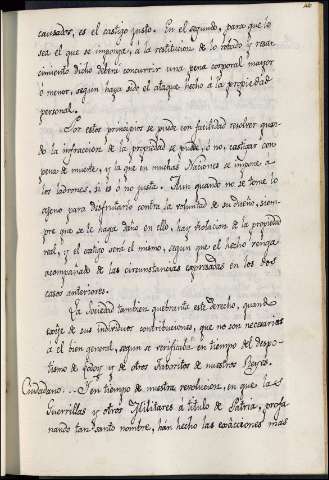 causador, es el castigo justo. En el segundo, para que lo
sea el que se imponga, á la restitucion de lo robado y resar
cimiento dicho deberá concurrir una pena corporal mayor
ó menor, segun haya sido el ataque hecho á la propiedad
personal.
Por estos principios se puede con facilidad resolver quan-
do la infraccion de la propiedad se puede, ó no, castigar con
pena de muerte, y la que en muchas Naciones se impone á
los ladrones, si es ó no justa. Aun quando no se tome lo
ageno para disfrutarlo contra la voluntad de su dueño, siem-
pre que se le haga daño en ello, hay violacion de la propiedad
real, y el castigo será el mismo, segun que el hecho venga
acompañado de las circunstancias expresadas en los dos
casos anteriores.
La Sociedad tambien quebranta este derecho, quando
exije de sus individuos contribuciones, que no son necesarias
á el bien general, segun se verificaba en tiempo del Despo-
tismo de Godoy y de otros Favoritos de nuestros Reyes.
Ciudadano... Y en tiempo de nuestra revolucion, en que las
Guerrillas y otros Militares á titulo de Patria, profa-
nando tan santo nombre, hán hecho las exâcciones mas